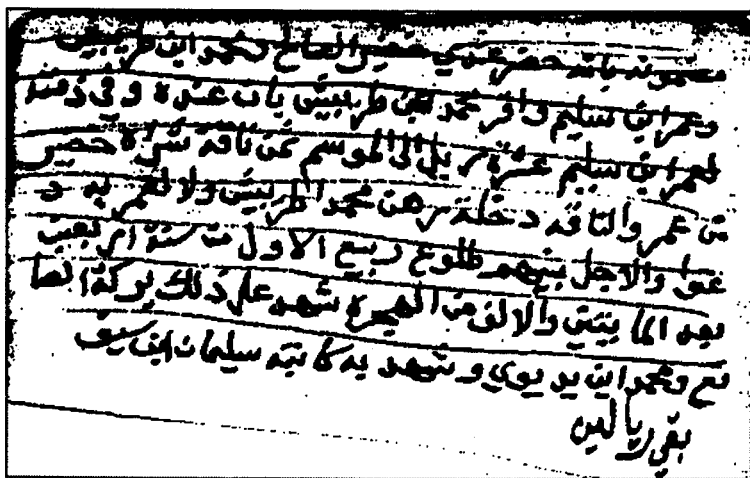 مضمونه بانه حضر عندي حصين الصانع ومحمد ابن طربيش
وعمر ابن سليم واقر محمد ابن طربيش بان عنده وفي ذمته
لعمر ابن سليم عشرة اريل الى الموسم ثمن ناقه شراه حصين
من عمر والناقه دخلة رهن محمد الطربيش ولا لعمر به د
عوا والاجل بينهم طلوع ربيع الاول من سنة اربعين
بعد المايتين والالف من الهجره شهد على ذلك بركة الصا
نع ومحمد ابن بديوي وشهد به كاتبه سليمان ابن سيف
بقي ريالين